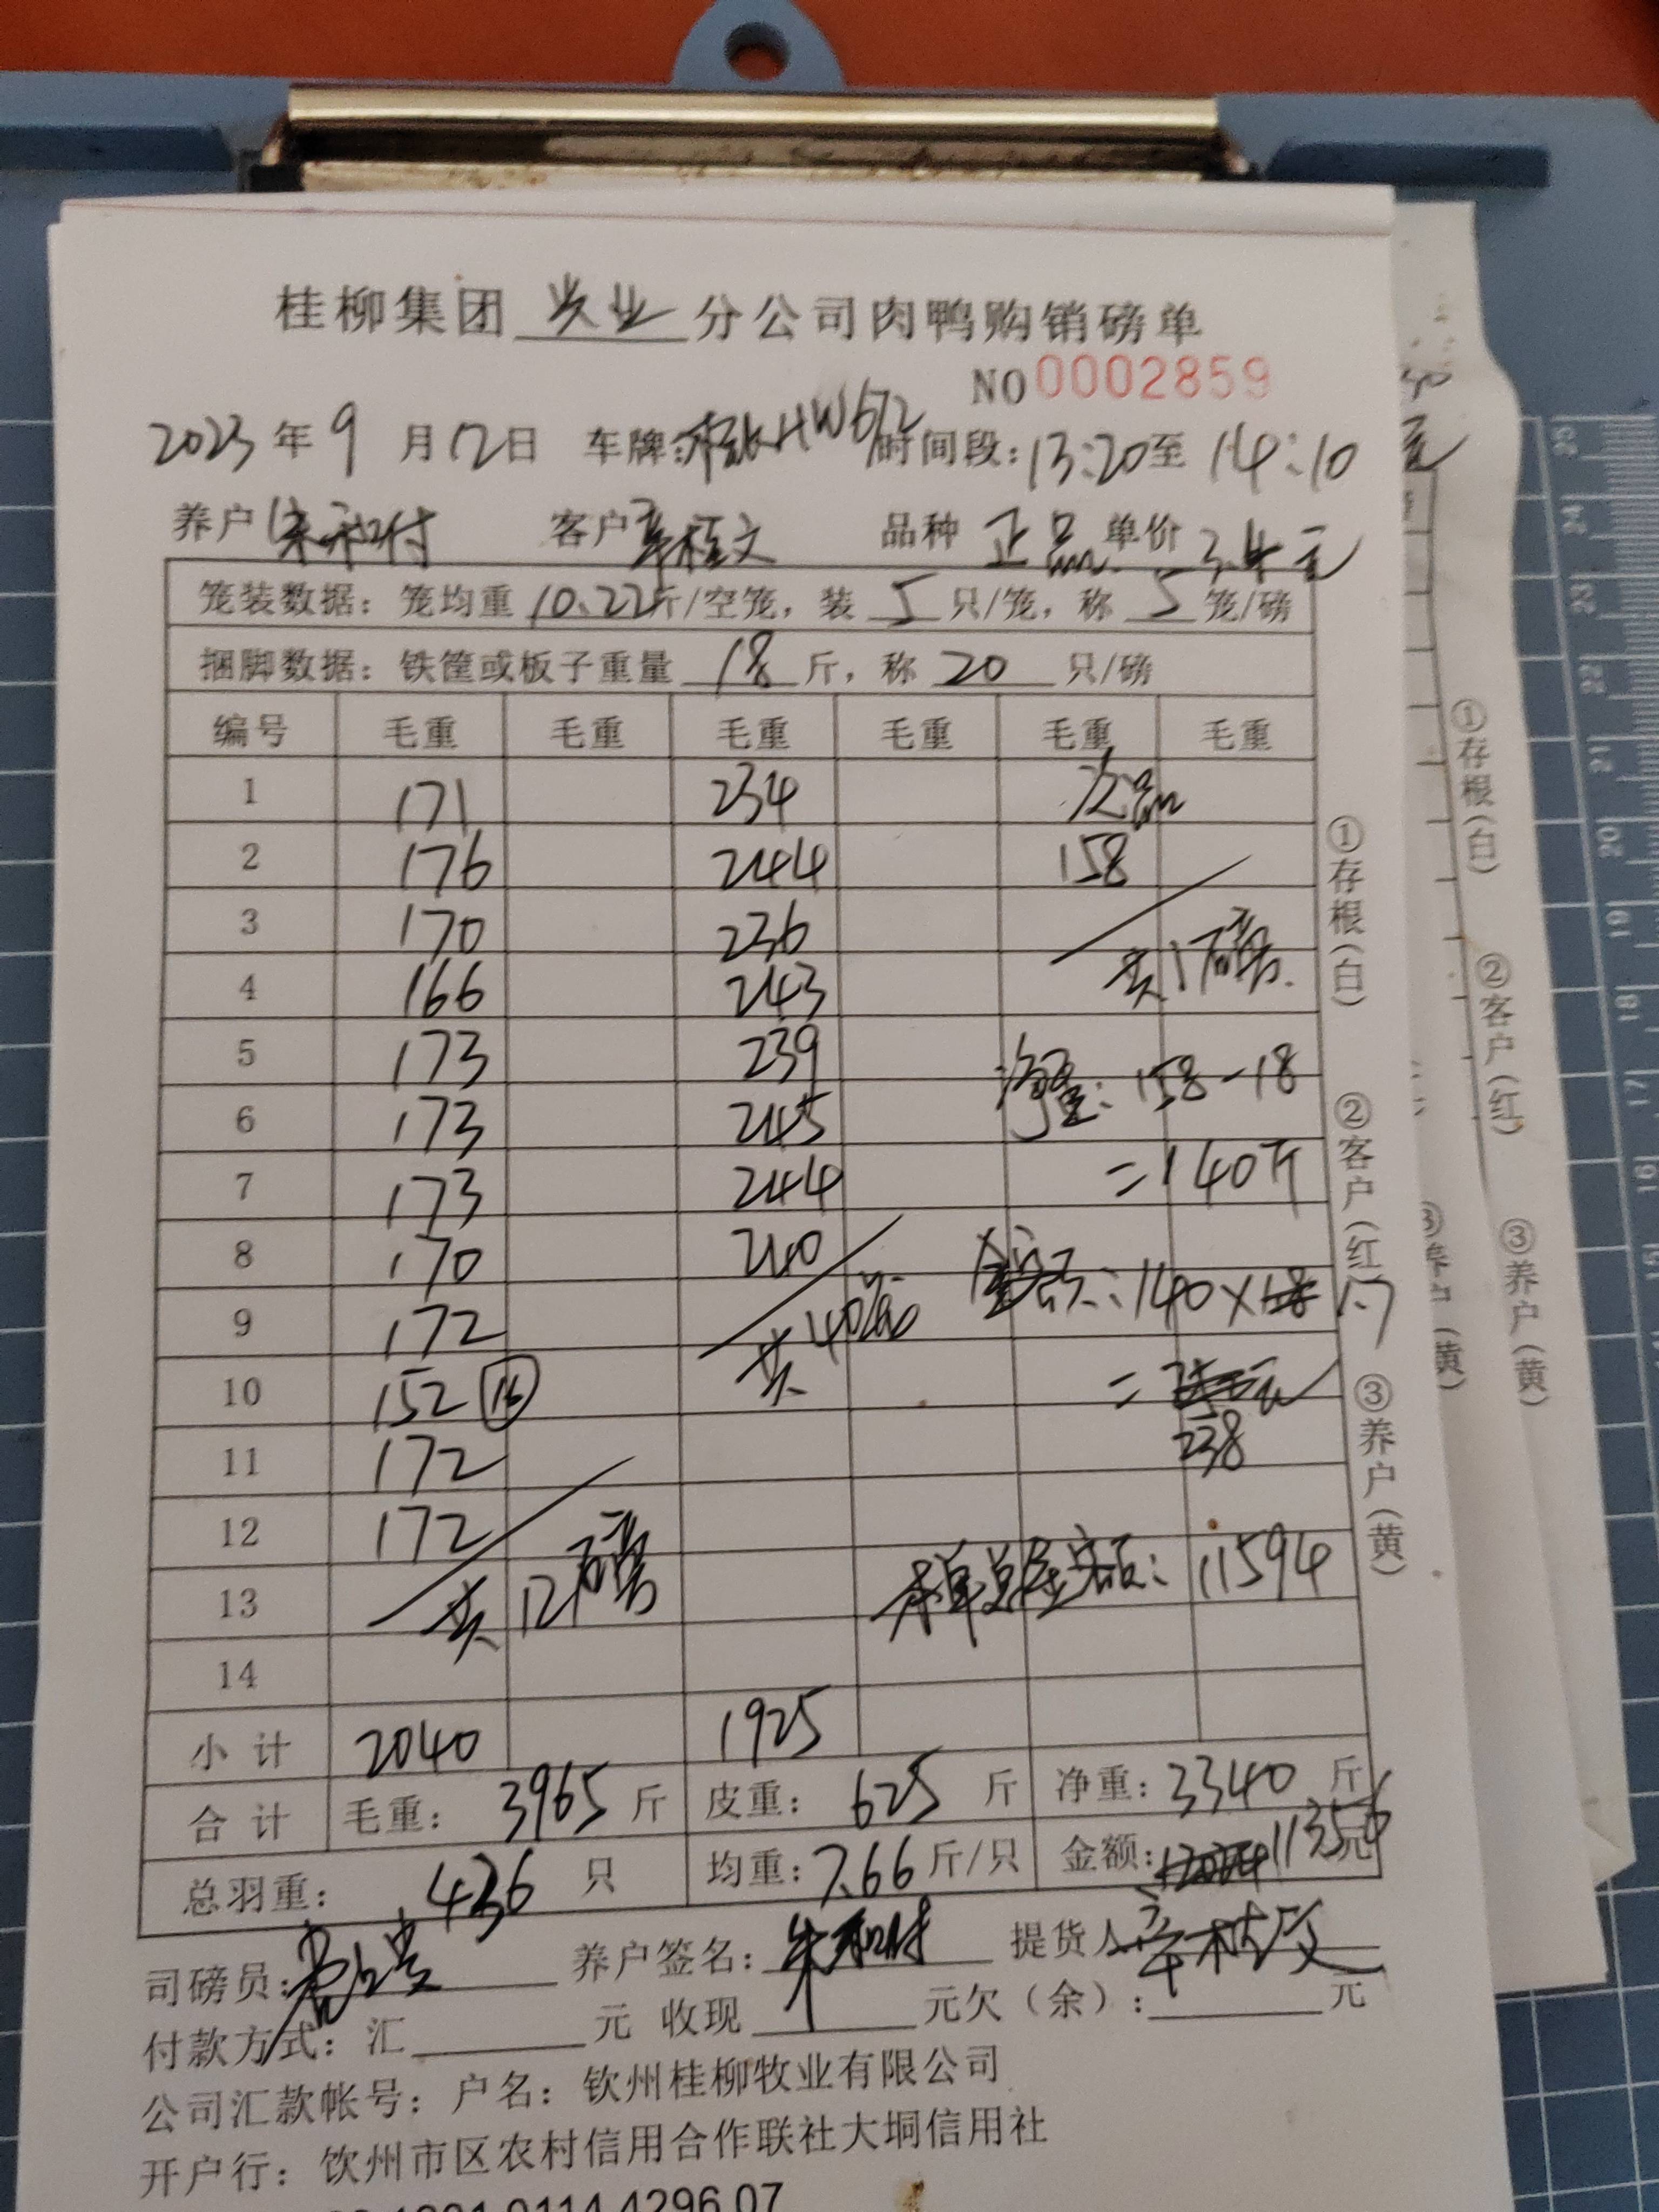 桂柳集团 兴业 分公司肉鸭购销磅单
NO 0002859
2023 年 9 月 12 日 车牌: HW672 时间段: 13:20 至 14:10
养户 客户 品种 正品 单价 3.4元
笼装数据: 笼均重 10.22 斤/空笼, 装 5 只/笼, 称 5 笼/磅
捆脚数据: 铁筐或板子重量 18 斤, 称 20 只/磅
编号 毛重 毛重 毛重 毛重 毛重 毛重
1 171 234 次品
2 176 244 158
3 170 236
4 166 243 共1磅.
5 173 239 净重: 158-18
6 173 245
7 173 244 =140斤
8 170 240
9 172 共 金额: 140× 1.7
10 152 16 =
11 172 238
12 172
13 共12磅 本单总金额: 11594
14
小计 2040 1925
合计 毛重: 3965 斤 皮重: 625 斤 净重: 3340 斤
总羽重: 436 只 均重: 7.66 斤/只 金额: 11356 元
司磅员: 养户签名: 提货人:
付款方式: 汇 元 收现 元欠(余): 元
公司汇款帐号: 户名: 钦州桂柳牧业有限公司
开户行: 钦州市区农村信用合作联社大垌信用社
①存根(白)
②客户(红)
③养户(黄)
①存根(白)
②客户(红)
③养户(黄)